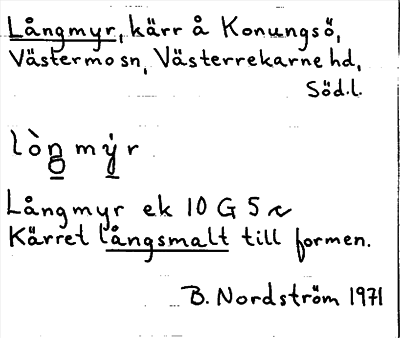 Långmyr, kärr å Konungsö,
Västermo sn, Västerrekarne hd,
Söd.l.
lòŋ mỳr
Långmyr ek 10 G 5 r
Kärret långsmalt till formen.
B. Nordström 1971